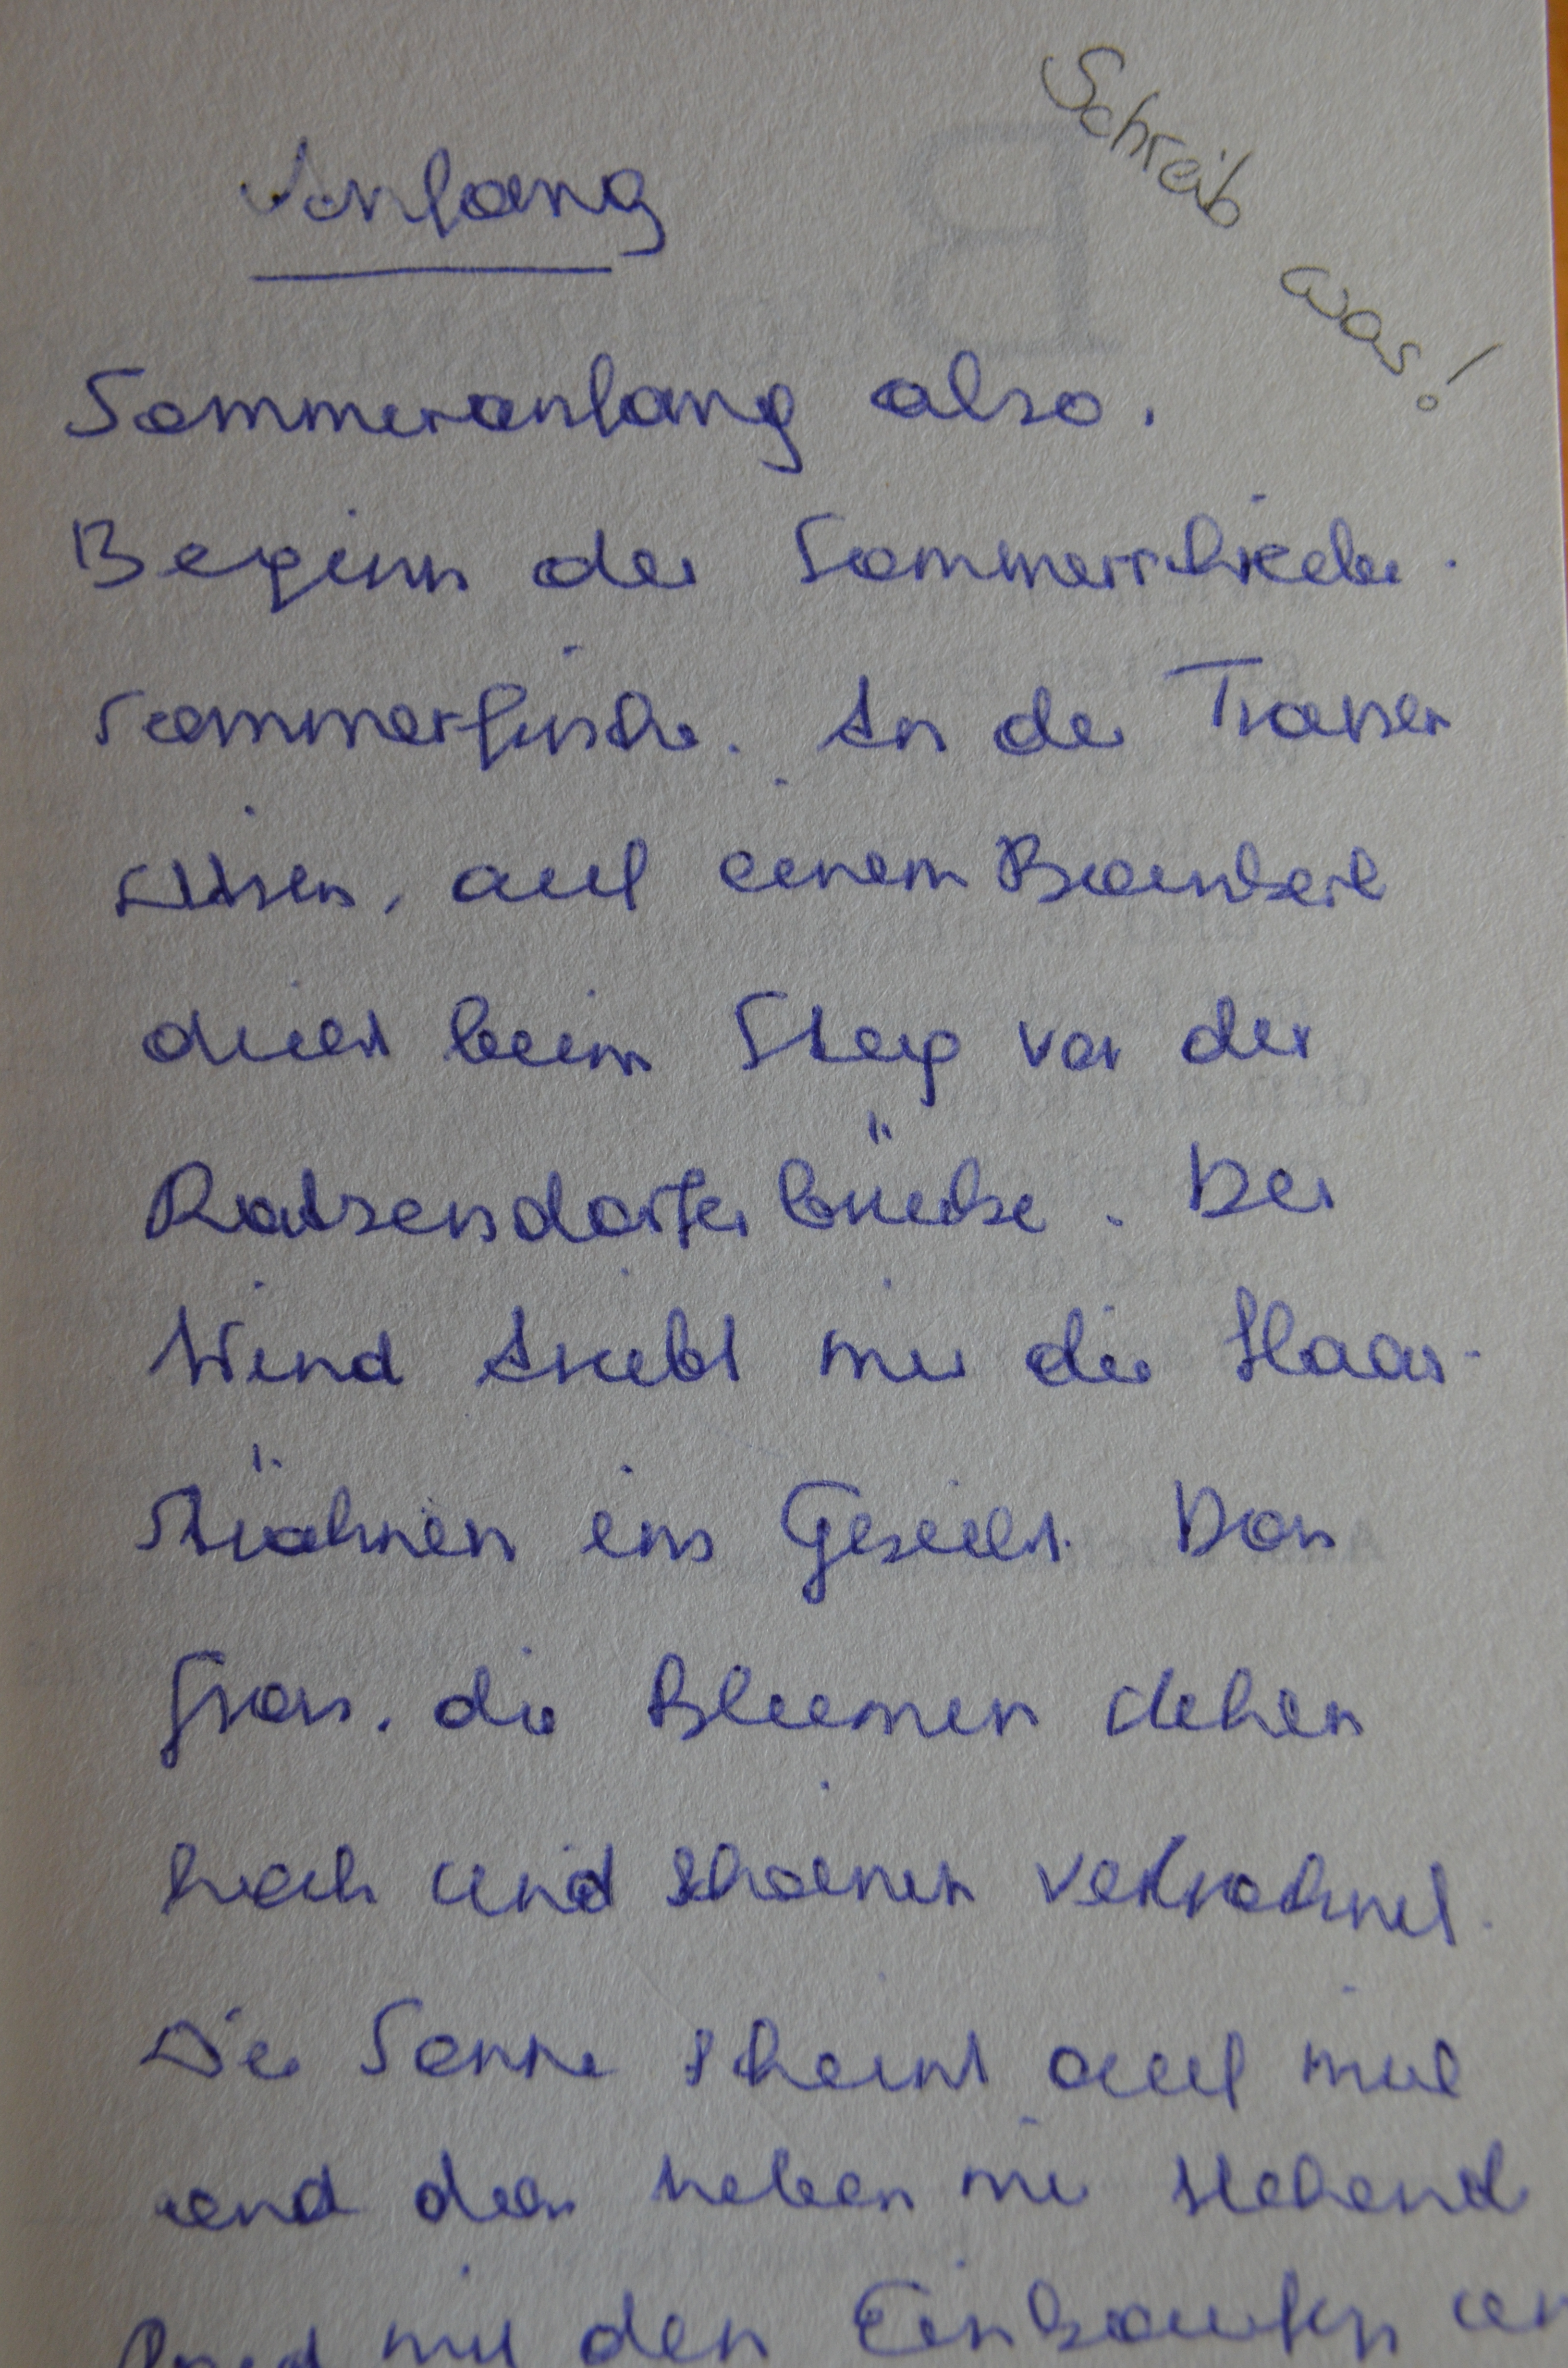 Schreib was!
Anfang
Sommeranfang also.
Beginn der
Sommerfrische. An der Traisen
sitzen, auf einem Bankerl
dicht beim Steg vor der
Ratzersdorferbrücke. Der
Wind treibt mir die Haar-
strähnen ins Gesicht. Das
Gras, die Blumen stehen
hoch und schonen vertrocknet.
Die Sonne scheint auf mich
und das neben mir stehend
Rad mit den Einkäufen